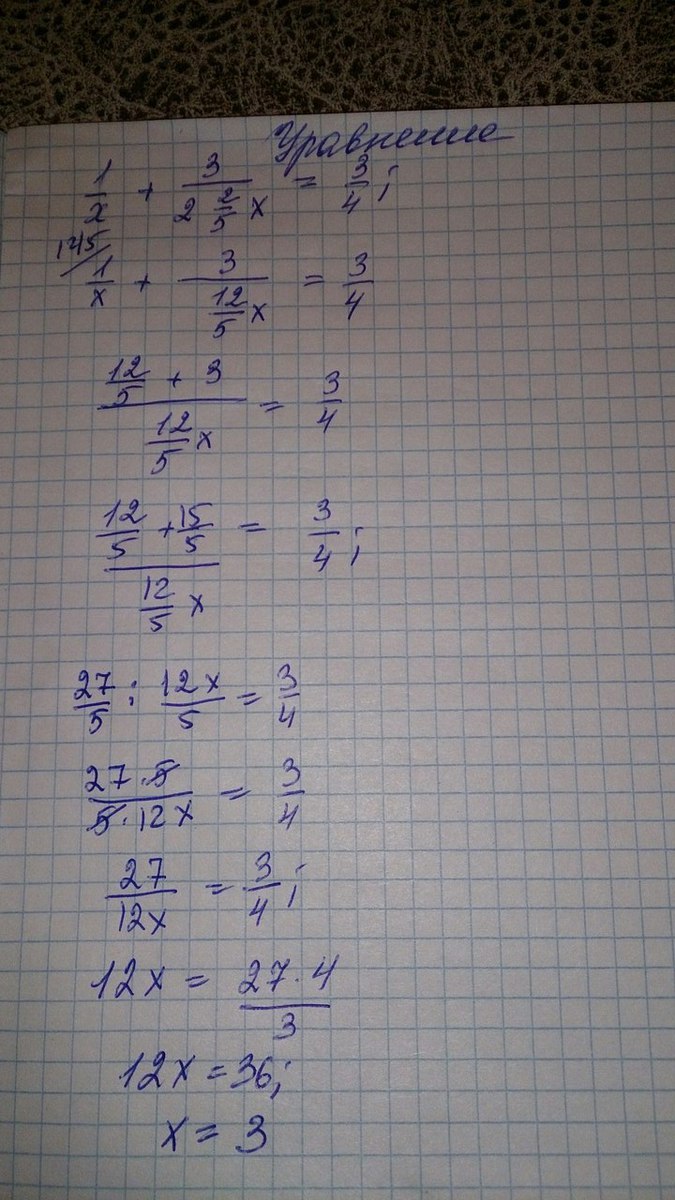 Уравнение
1/x + 3/(2 2/5 x) = 3/4;
12/5/
1/x + 3/(12/5 x) = 3/4
(12/5 + 3)/(12/5 x) = 3/4
(12/5 + 15/5)/(12/5 x) = 3/4;
27/5 : 12x/5 = 3/4
27·5/5·12x = 3/4
27/12x = 3/4;
12x = 27·4/3
12x = 36;
x = 3